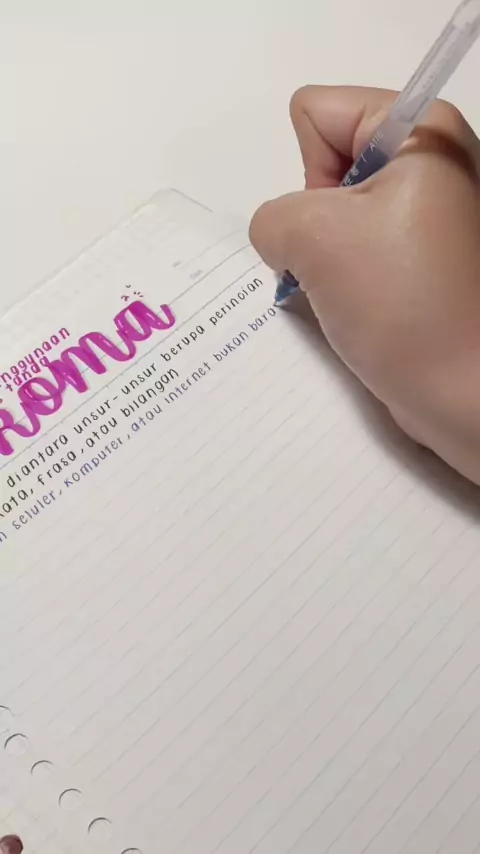 nggunaan
tanda
koma
diantara unsur-unsur berupa perincian
kata, frasa, atau bilangan
n seluler, komputer, atau internet bukan bara